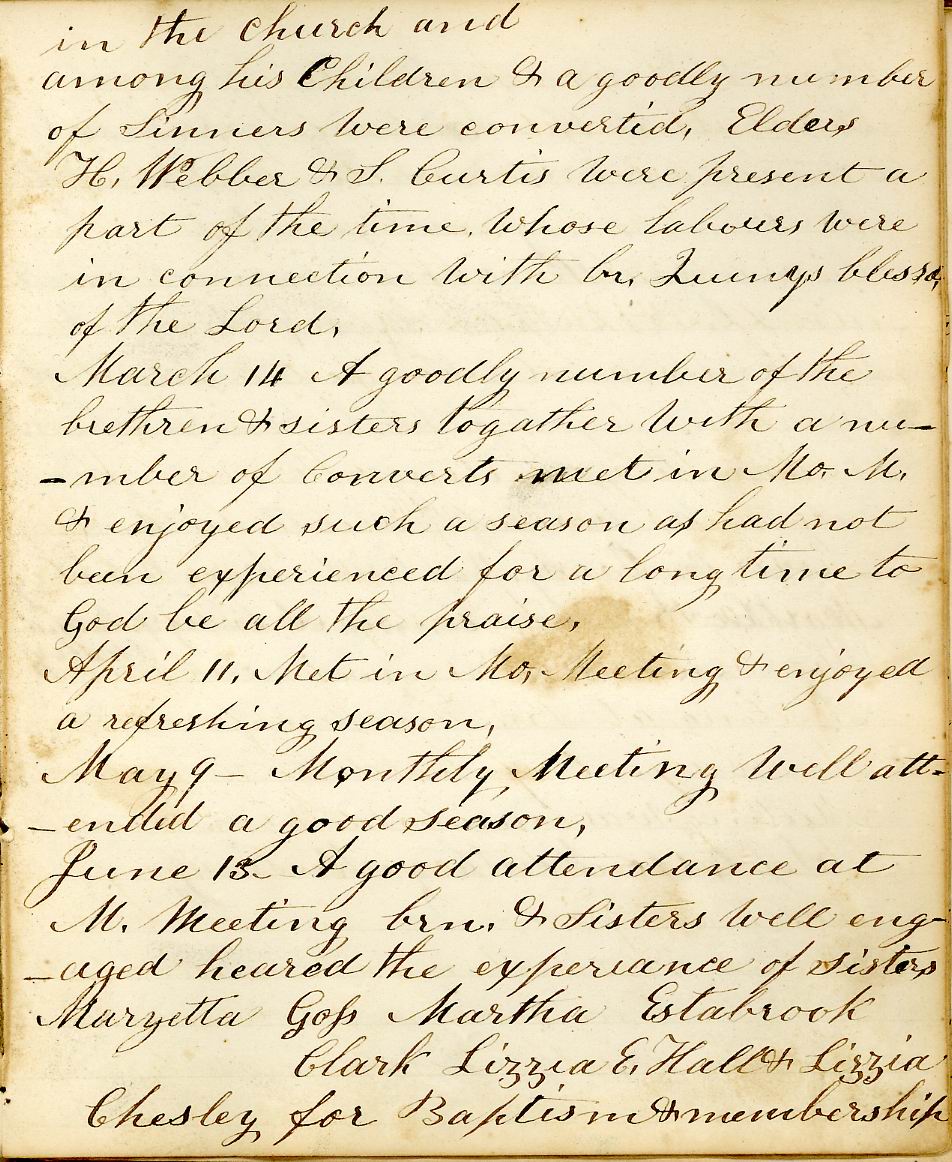 in the church and
among his Children & a goodly number
of Sinners were converted, Elders
H. Webber & S. Curtis were present a
part of the time, whose labours were
in connection with br. Quinys blessd,
of the Lord,
March 14 A goodly number of the
brethren & sisters togather with a nu-
-mber of Converts met in Mo. M.
& enjoyed such a season as had not
been experienced for a long time to
God be all the praise,
April 11. Met in Mo, Meeting & enjoyed
a refreshing season,
May 9 - Monthly, Meeting Well att-
-ended a good season,
June 13- A good attendance at
M. Meeting brn. & Sisters Well eng-
-aged heared the experiance of sisters
Maryetta Goss Martha Estabrook
Clark Lizzia E. Hall & Lizzia
Chesley for Baptism & membership